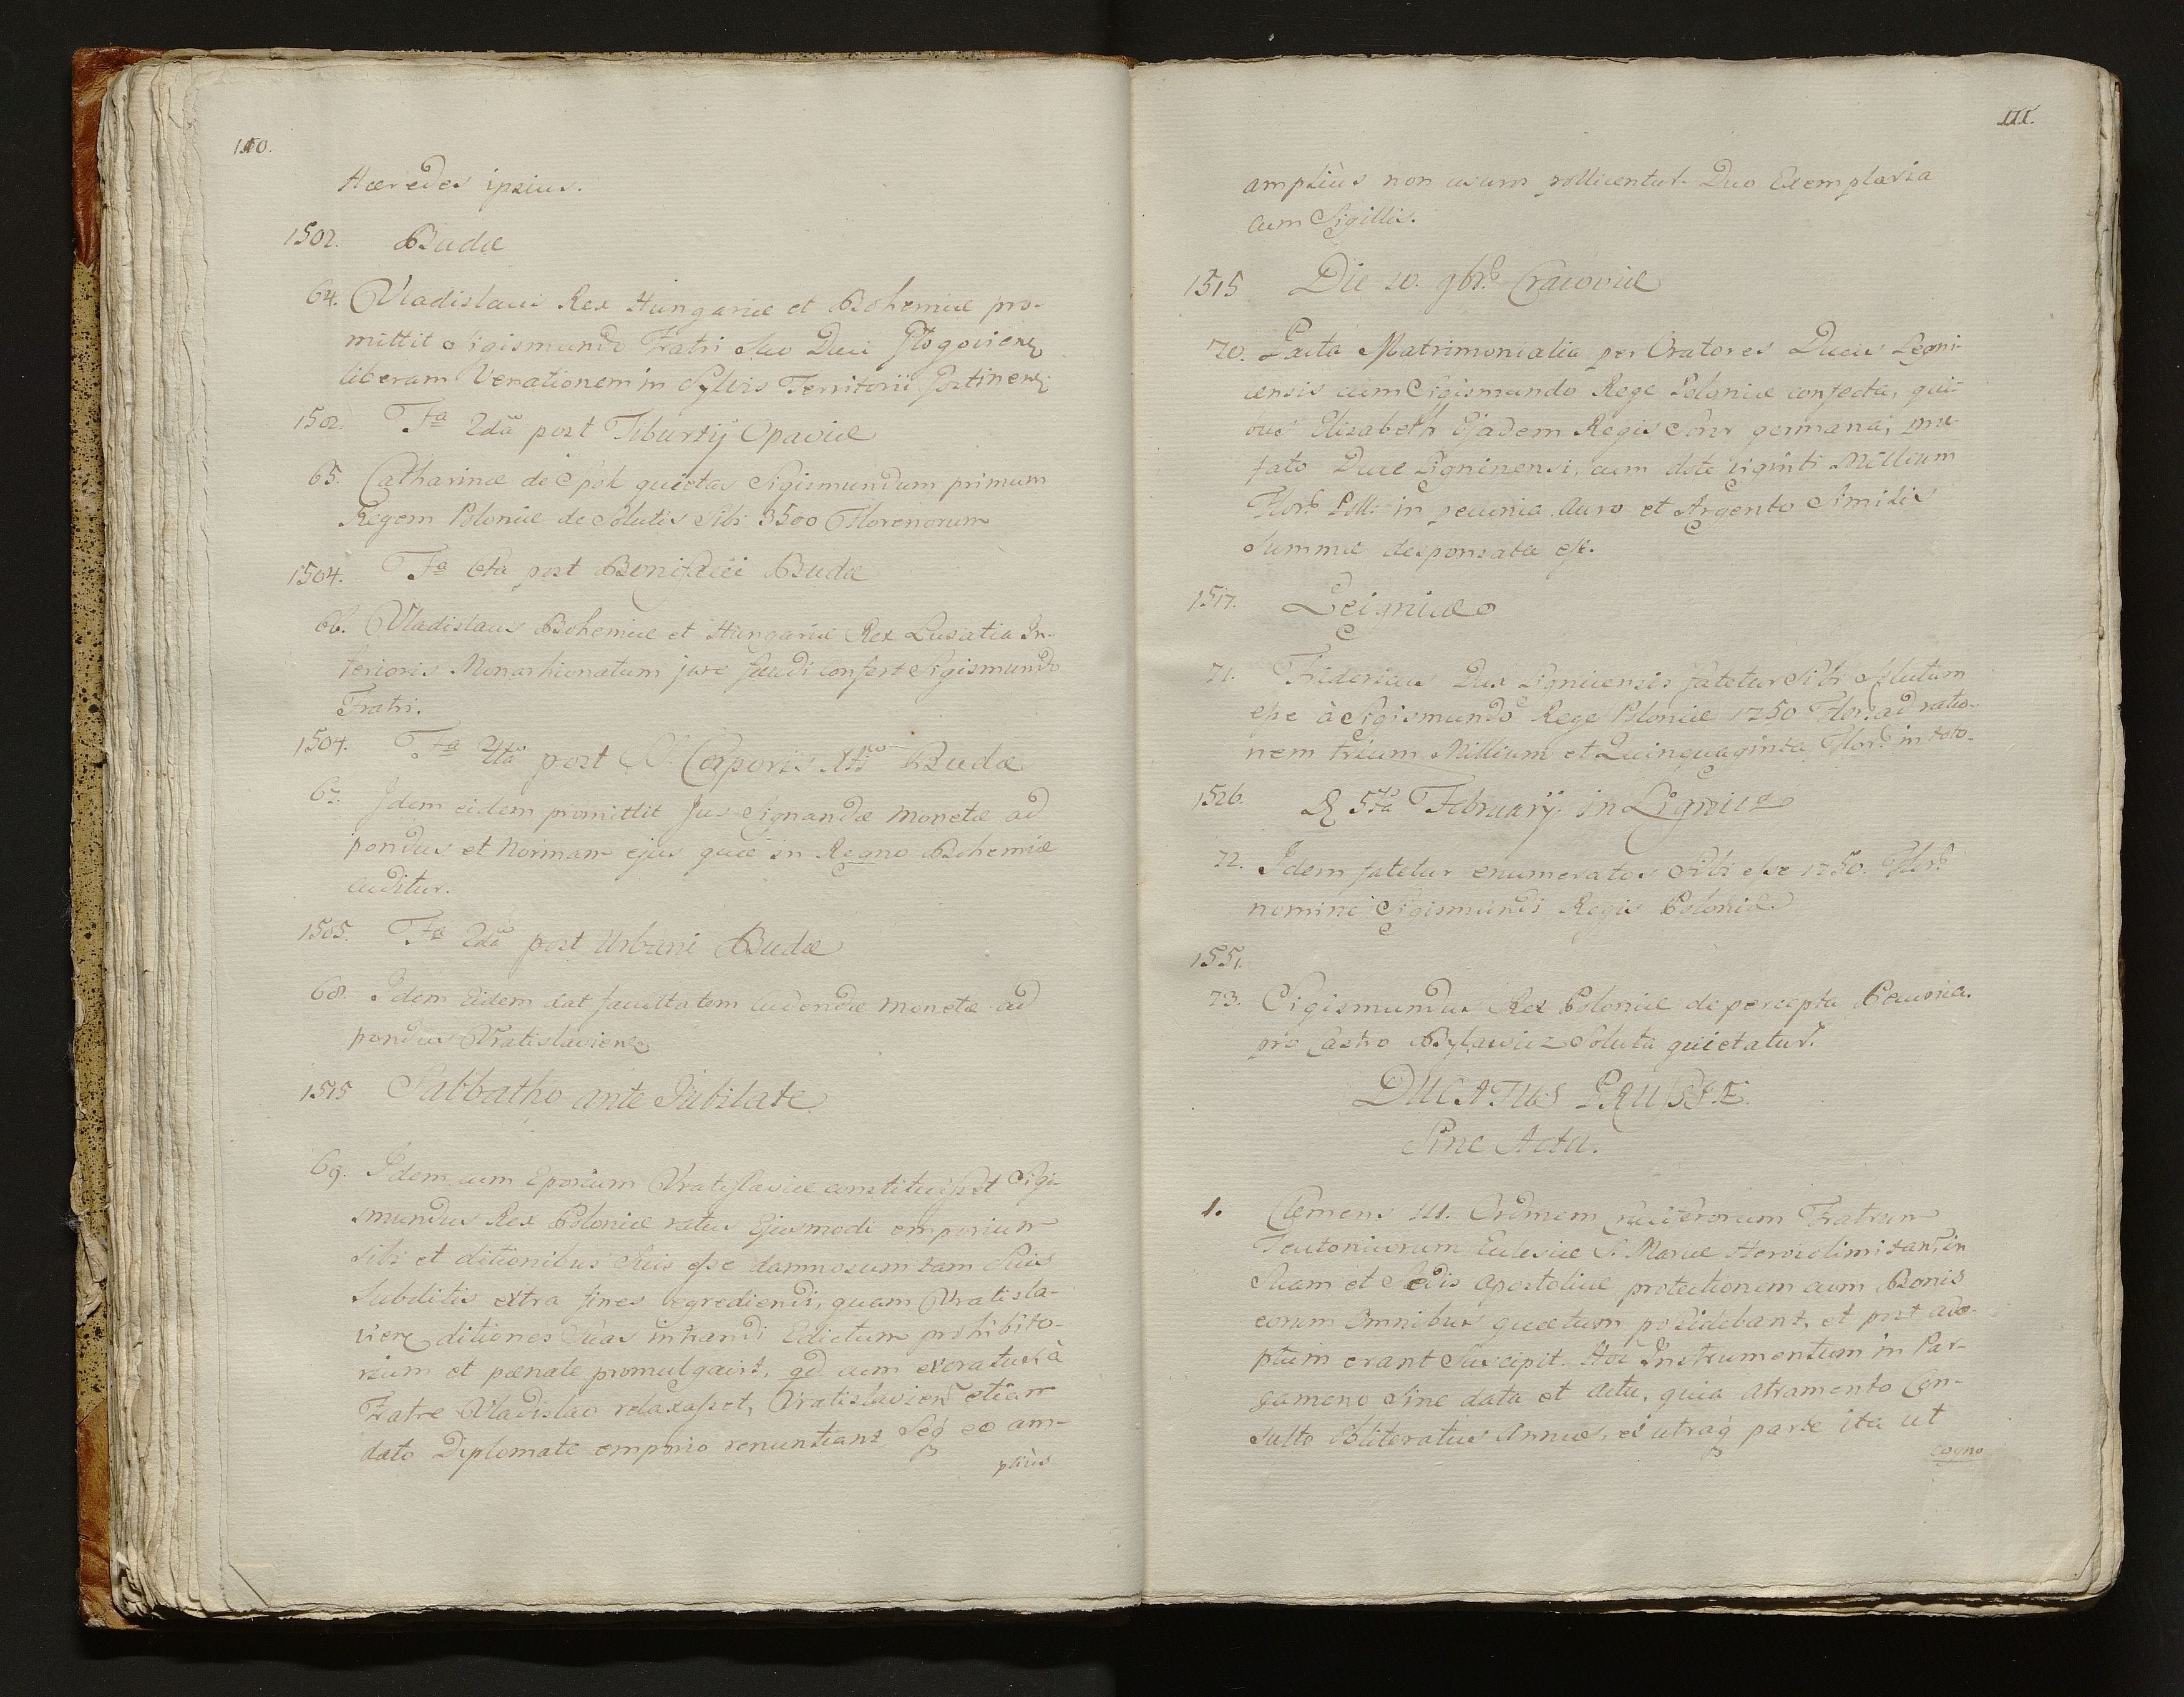 110.
Hæredes ipsius.
1502. Budæ
64. Vladislaus Rex Hungariæ et Bohemiæ pro-
mittit Sigismundo Fratri Suo Duci Glogoviens
liberam Venationem in Sylvis Territorii
1502. Fa 2da post Tiburtij Opaviæ
65. Catharinæ de Spol quietas Sigismundum primum
Regem Poloniæ de Solutis Sibi 3500 Florenorum
1504. Fa 6ta post Bonifacii Budæ
66. Vladislaus Bohemiæ et Hungariæ Rex Lusatia In-
ferioris Monarhionatum jure feudi confert Sigismundo
Fratri.
1504. Fa 4ta post Corporis Xti Budæ
67. Idem eidem promittit Jus Signandæ Monetæ ad
pondus et Normam ejus quæ in Regno Bohemiæ
cuditur.
1505. Fa 2da post Urbani Budæ
68. Idem Eidem dat facultatem cudendæ Monetæ ad
pondus Vratislaviens
1515 Sabbatho ante Jubilate
69. Idem cum Eporium Vratislaviæ constituisset Sigi-
smundus Rex Poloniæ ratus Ejusmodi emporium
Sibi et ditionibus Suis esse damnosum tam Suis
Subditis extra fines egrediendi, quam Vratisla-
viens ditiones Suas intrandi Edictum prohibito-
rium et pœnale promulgavit, qd cum exoratus à
Fratre Vladislao relaxasset, Vratislavien etiam
dato Diplomate emporio renuntiant Seq eo am-
plius
111.
amplius non usum pollicentur. Duo Exemplaria
cum Sigillis.
1515 Die 20. 9br. Cracoviæ
70. Pacta Matrimonialia per Oratores Ducis Legni-
censis cum Sigismundo Rege Poloniæ confecta, qui-
bus Elizabeth Ejadem Regis Soror germana, præ-
fato Duce Ligninensi, cum dote viginti Millium
Flor. Poll: in pecunia Auro et Argento Similis
Summæ desponsata est.
1517. Leigniciæ
71. Fridericus Dux Ligniicensis fatetur Sibi Solutum
esse à Sigismundo Rege Poloniæ 1750 Flor. ad ratio-
nem trium Millium et Quinquaginta Flor. in toto.
1526. 5ta February in Lignica
72. Idem fatetur enumeratos Sibi esse 1750. Flor.
nomine Sigismundi Regis Poloniæ.
1551.
73. Sigismundus Rex Poloniæ de percepta Pecunia.
pro Castro Bylawicz Soluta quietatur.
DUCATUS PRUSSIÆ.
Sine Actu.
1. Clemens III. Ordinem Cruciferorum Fratrum
Teutonicorum Eclesiæ S. Mariæ Hierosolimitan, in
Suam et Sedis Apostolicæ protectionem cum Bonis
eorum Omnibus quæ tum possidebant, et post ade-
ptum erant Suscipit. Hoc Instrumentum in Par-
gameno Sine data et Actu, quia Atramento Con-
sulto Obliteratus Annus, ex utraq parte ita ut
cogno